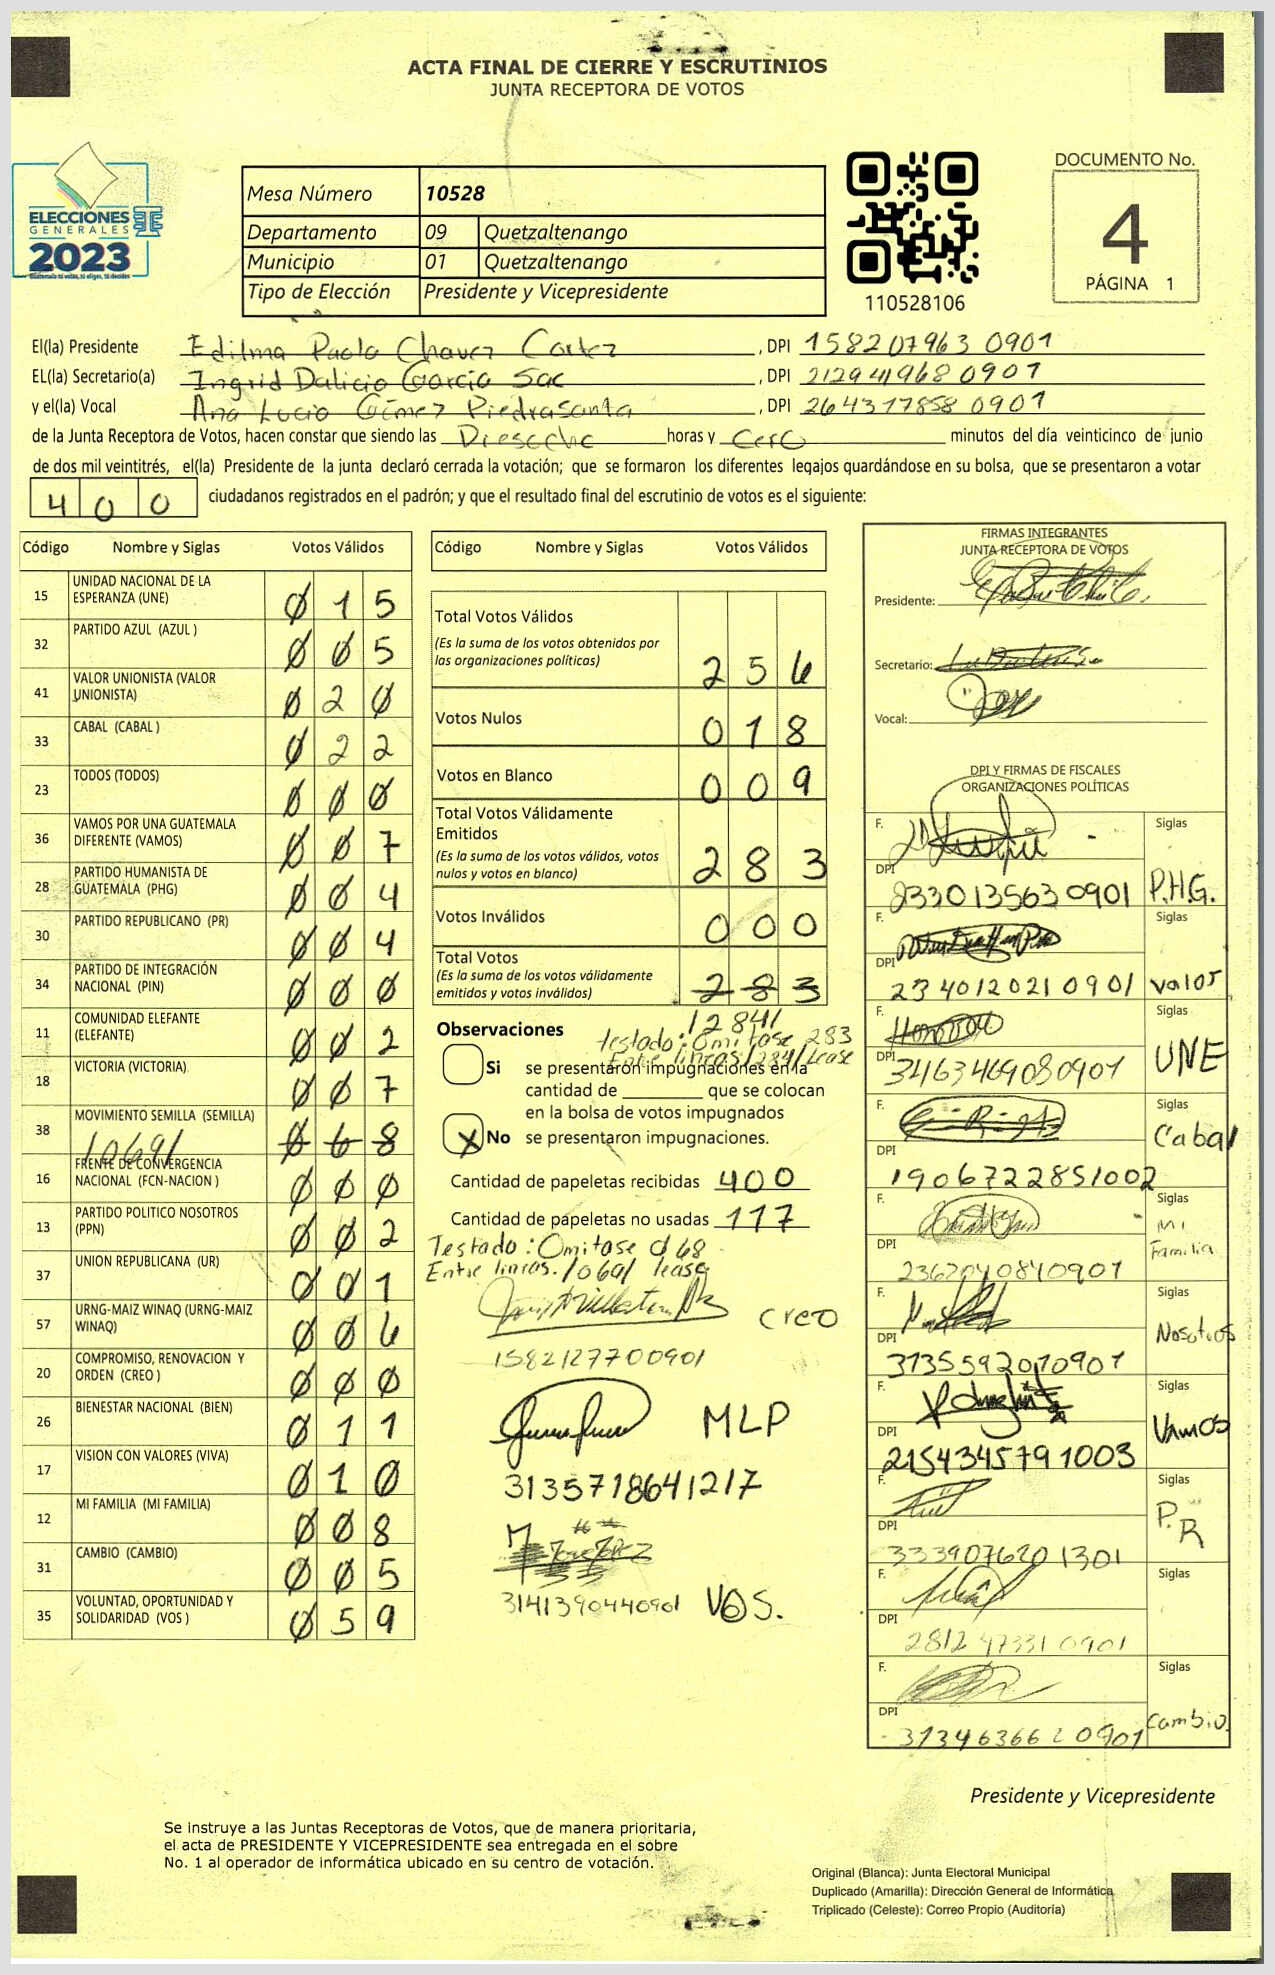 ACTA FINAL DE CIERRE Y ESCRUTINIOS
JUNTA RECEPTORA DE VOTOS
ELECCIONES
GENERALES
2023
Mesa Número 10528
Departamento 09 Quetzaltenango
Municipio 01 Quetzaltenango
Tipo de Elección Presidente y Vicepresidente
110528106
DOCUMENTO No.
4
PÁGINA 1
El(la) Presidente Edilma Paola Chavez Cortez, DPI 158207963 0901
EL(la) Secretario(a) Ingrid Dalicio García Sac, DPI 212941968 0901
y el(la) Vocal Ana Lucia Gómez Piedrasanta, DPI 264317858 0901
de la Junta Receptora de Votos, hacen constar que siendo las horas y Cero minutos del día veinticinco de junio
de dos mil veintitrés, el(la) Presidente de la junta declaró cerrada la votación; que se formaron los diferentes legajos guardándose en su bolsa, que se presentaron a votar
400 ciudadanos registrados en el padrón; y que el resultado final del escrutinio de votos es el siguiente:
Código Nombre y Siglas Votos Válidos
15 UNIDAD NACIONAL DE LA ESPERANZA (UNE) 015
32 PARTIDO AZUL (AZUL ) 005
41 VALOR UNIONISTA (VALOR UNIONISTA) 020
33 CABAL (CABAL ) 022
23 TODOS (TODOS) 000
36 VAMOS POR UNA GUATEMALA DIFERENTE (VAMOS) 007
28 PARTIDO HUMANISTA DE GUATEMALA (PHG) 004
30 PARTIDO REPUBLICANO (PR) 004
34 PARTIDO DE INTEGRACIÓN NACIONAL (PIN) 000
11 COMUNIDAD ELEFANTE (ELEFANTE) 002
18 VICTORIA (VICTORIA) 007
38 MOVIMIENTO SEMILLA (SEMILLA) 068
/069/
16 FRENTE DE CONVERGENCIA NACIONAL (FCN-NACION ) 000
13 PARTIDO POLITICO NOSOTROS (PPN) 002
37 UNION REPUBLICANA (UR) 001
57 URNG-MAIZ WINAQ (URNG-MAIZ WINAQ) 006
20 COMPROMISO, RENOVACION Y ORDEN (CREO ) 000
26 BIENESTAR NACIONAL (BIEN) 011
17 VISION CON VALORES (VIVA) 010
12 MI FAMILIA (MI FAMILIA) 008
31 CAMBIO (CAMBIO) 005
35 VOLUNTAD, OPORTUNIDAD Y SOLIDARIDAD (VOS ) 059
Código Nombre y Siglas Votos Válidos
Total Votos Válidos 256
(Es la suma de los votos obtenidos por
las organizaciones políticas)
Votos Nulos 018
Votos en Blanco 009
Total Votos Válidamente
Emitidos 283
(Es la suma de los votos válidos, votos
nulos y votos en blanco)
Votos Inválidos 000
Total Votos 283
(Es la suma de los votos válidamente
emitidos y votos inválidos)
/284/
Observaciones
Testado: Omitase 283
Entre lineas /284/ Lease
Si se presentaron impugnaciones en la
cantidad de que se colocan
en la bolsa de votos impugnados
X No se presentaron impugnaciones.
Cantidad de papeletas recibidas 400
Cantidad de papeletas no usadas 117
Testado: Omitase 068
Entre lineas. /069/ lease
Creo
1582127700901
MLP
3135718641217
3141390440901 VOS.
FIRMAS INTEGRANTES
JUNTA RECEPTORA DE VOTOS
Presidente:
Secretario:
Vocal:
DPI Y FIRMAS DE FISCALES
ORGANIZACIONES POLÍTICAS
F. Siglas
DPI 2330135630901 P.H.G.
F. Siglas
DPI 2340120210901 Valor
F. Siglas
DPI 3463469080901 UNE
F. Siglas
DPI 1906722851002 Cabal
F. Siglas
DPI 2362040840901 Mi Familia
F. Siglas
DPI 3135592070901 Nosotros
F. Siglas
DPI 2154345791003 Vamos
F. Siglas
DPI 3339076201301 P.R
F. Siglas
DPI 2812473310901
F. Siglas
DPI 3134636620901 Cambio.
Presidente y Vicepresidente
Se instruye a las Juntas Receptoras de Votos, que de manera prioritaria,
el acta de PRESIDENTE Y VICEPRESIDENTE sea entregada en el sobre
No. 1 al operador de informática ubicado en su centro de votación.
Original (Blanca): Junta Electoral Municipal
Duplicado (Amarilla): Dirección General de Informática
Triplicado (Celeste): Correo Propio (Auditoría)